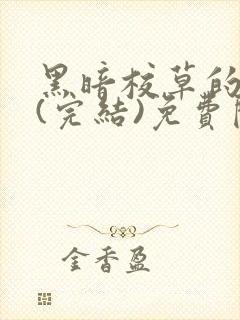 黑暗校草的
(完結)免費
金香盈